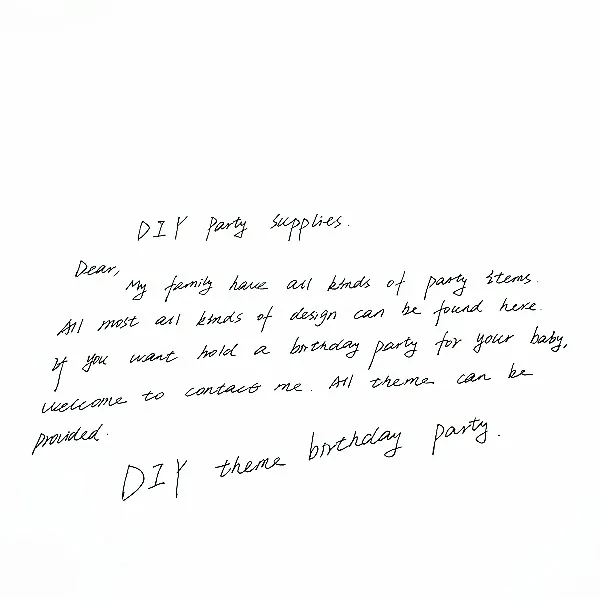 DIY Party supplies.
Dear,
My family have all kinds of party items.
All most all kinds of design can be found here.
If you want hold a birthday party for your baby,
welcome to contact me. All theme can be
provided.
DIY theme birthday party.